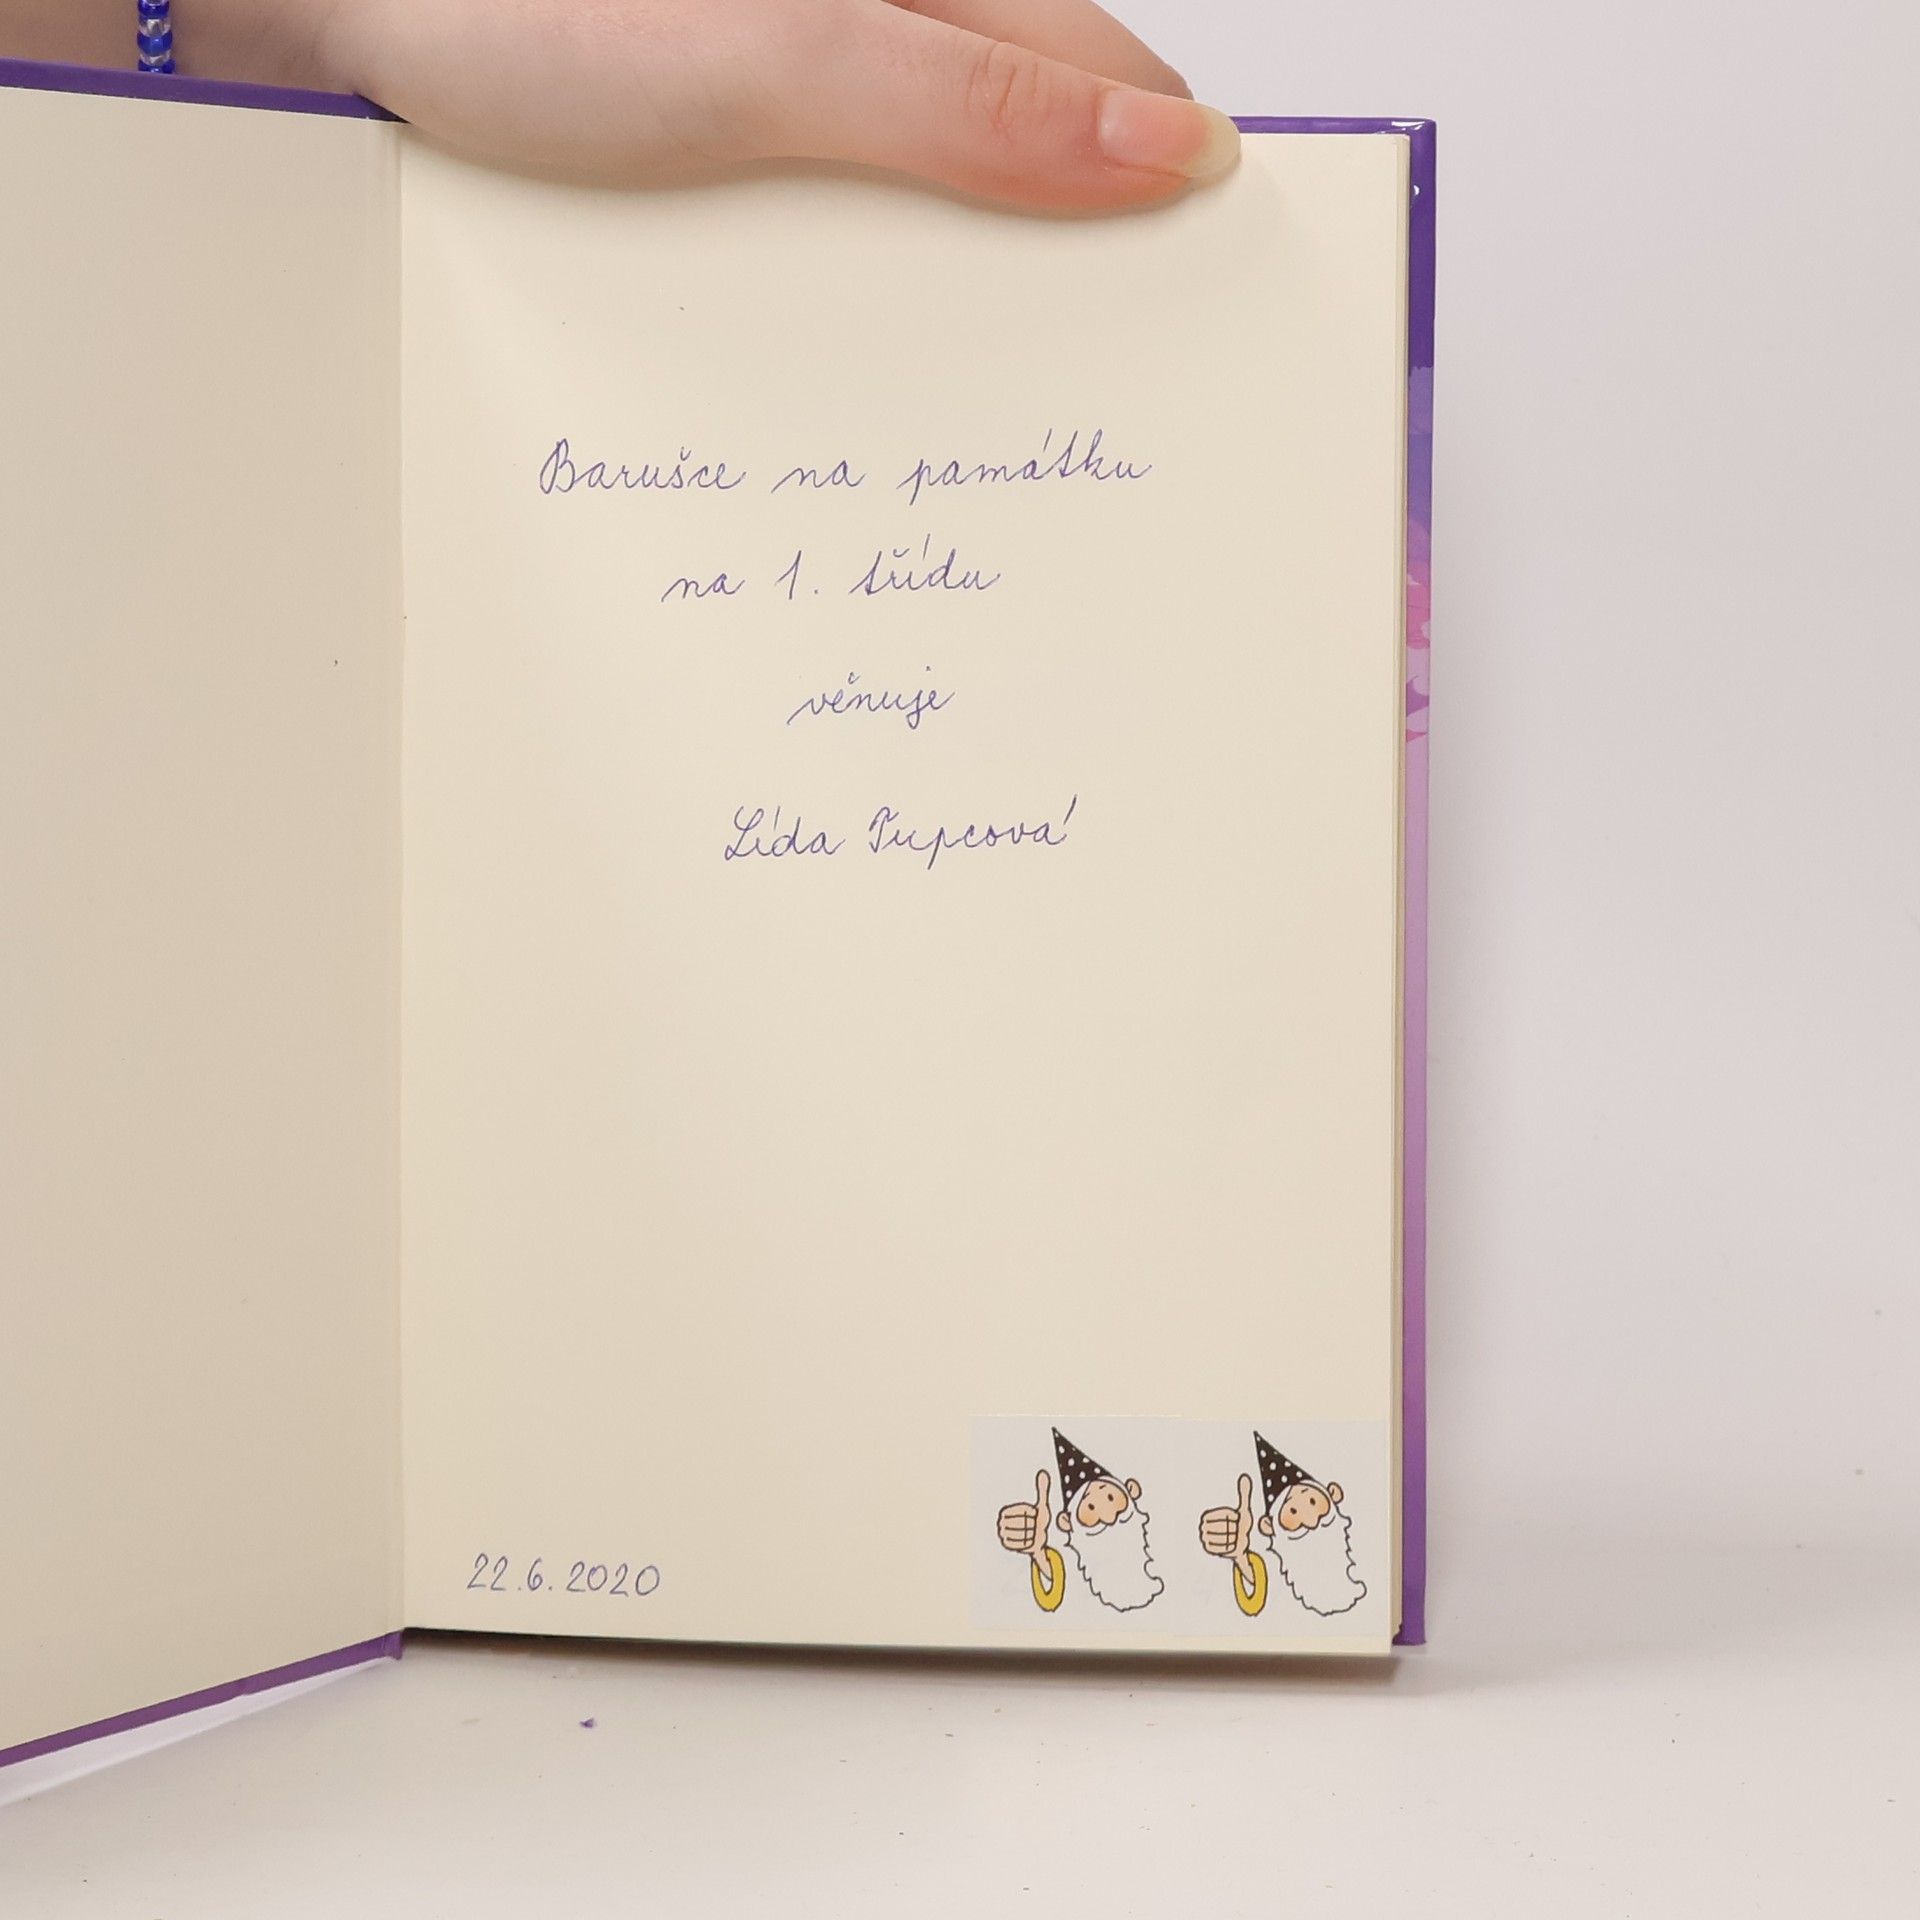 Barušce na památku
na 1. třídu
věnuje
Lída Tupcová
22.6.2020